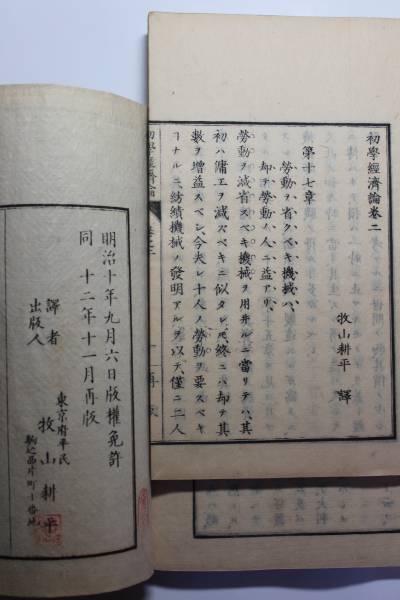 初學經濟論卷二
牧山耕平 譯
第十七章
勞動ヲ省クベキ機械ハ、
却テ勞動ノ人ニ益アリ、
勞動ヲ減省スベキ機械ヲ用井ルニ當リテハ、其
初ハ傭工ヲ減スベキニ似タレ𪜈、終ニハ却テ其
數ヲ增益スベシ、今夫レ十人ノ勞動ヲ要スベキ
ヿナルニ、紡績機械ノ發明アルヲ以テ、僅ニ二人
初學經濟論
卷之二
明治十年九月六日版權免許
同 十二年十一月再版
譯者
出版人
東京府平民
牧山耕平